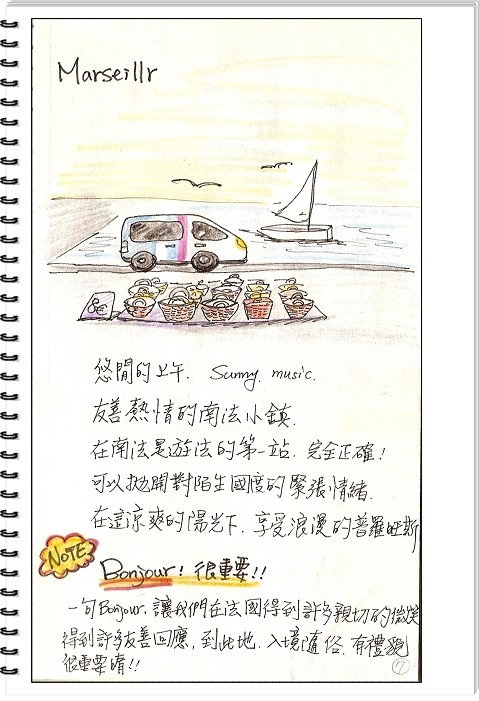 Marseillr
8€
悠閒的上午. Sunny. music.
友善熱情的南法小鎮.
在南法是遊法的第一站. 完全正確!
可以拋開對陌生國度的緊張情緒.
在這涼爽的陽光下. 享受浪漫的普羅旺斯
NOTE
Bonjour! 很重要!!
一句Bonjour. 讓我們在法國得到許多親切的微笑
得到許多友善回應, 到此地. 入境隨俗. 有禮貌
很重要唷!!
7